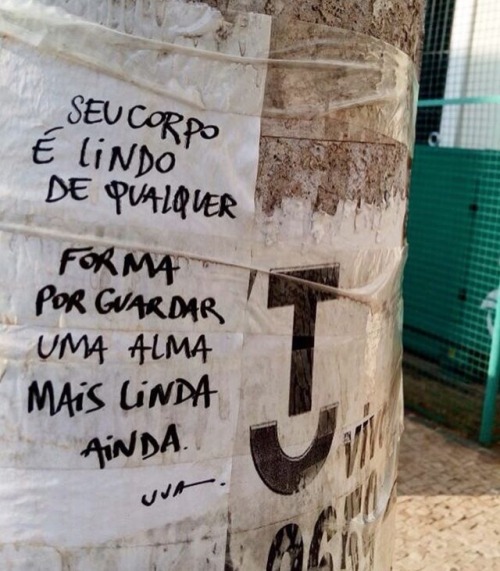 SEU CORPO
É LINDO
DE QUALQUER
FORMA
POR GUARDAR
UMA ALMA
MAIS LINDA
AINDA.
UVA